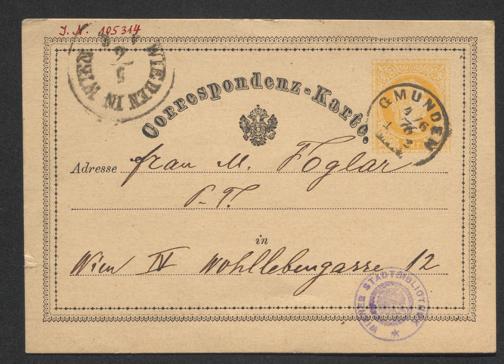 J. N. 105314
WIEDEN IN WIEN
Correspondenz-Karte.
GMUNDEN
Adresse Frau M. Foglar
P. T.
in
Wien IV Wohllebengasse 12
WIENER STADTBIBLIOTHEK